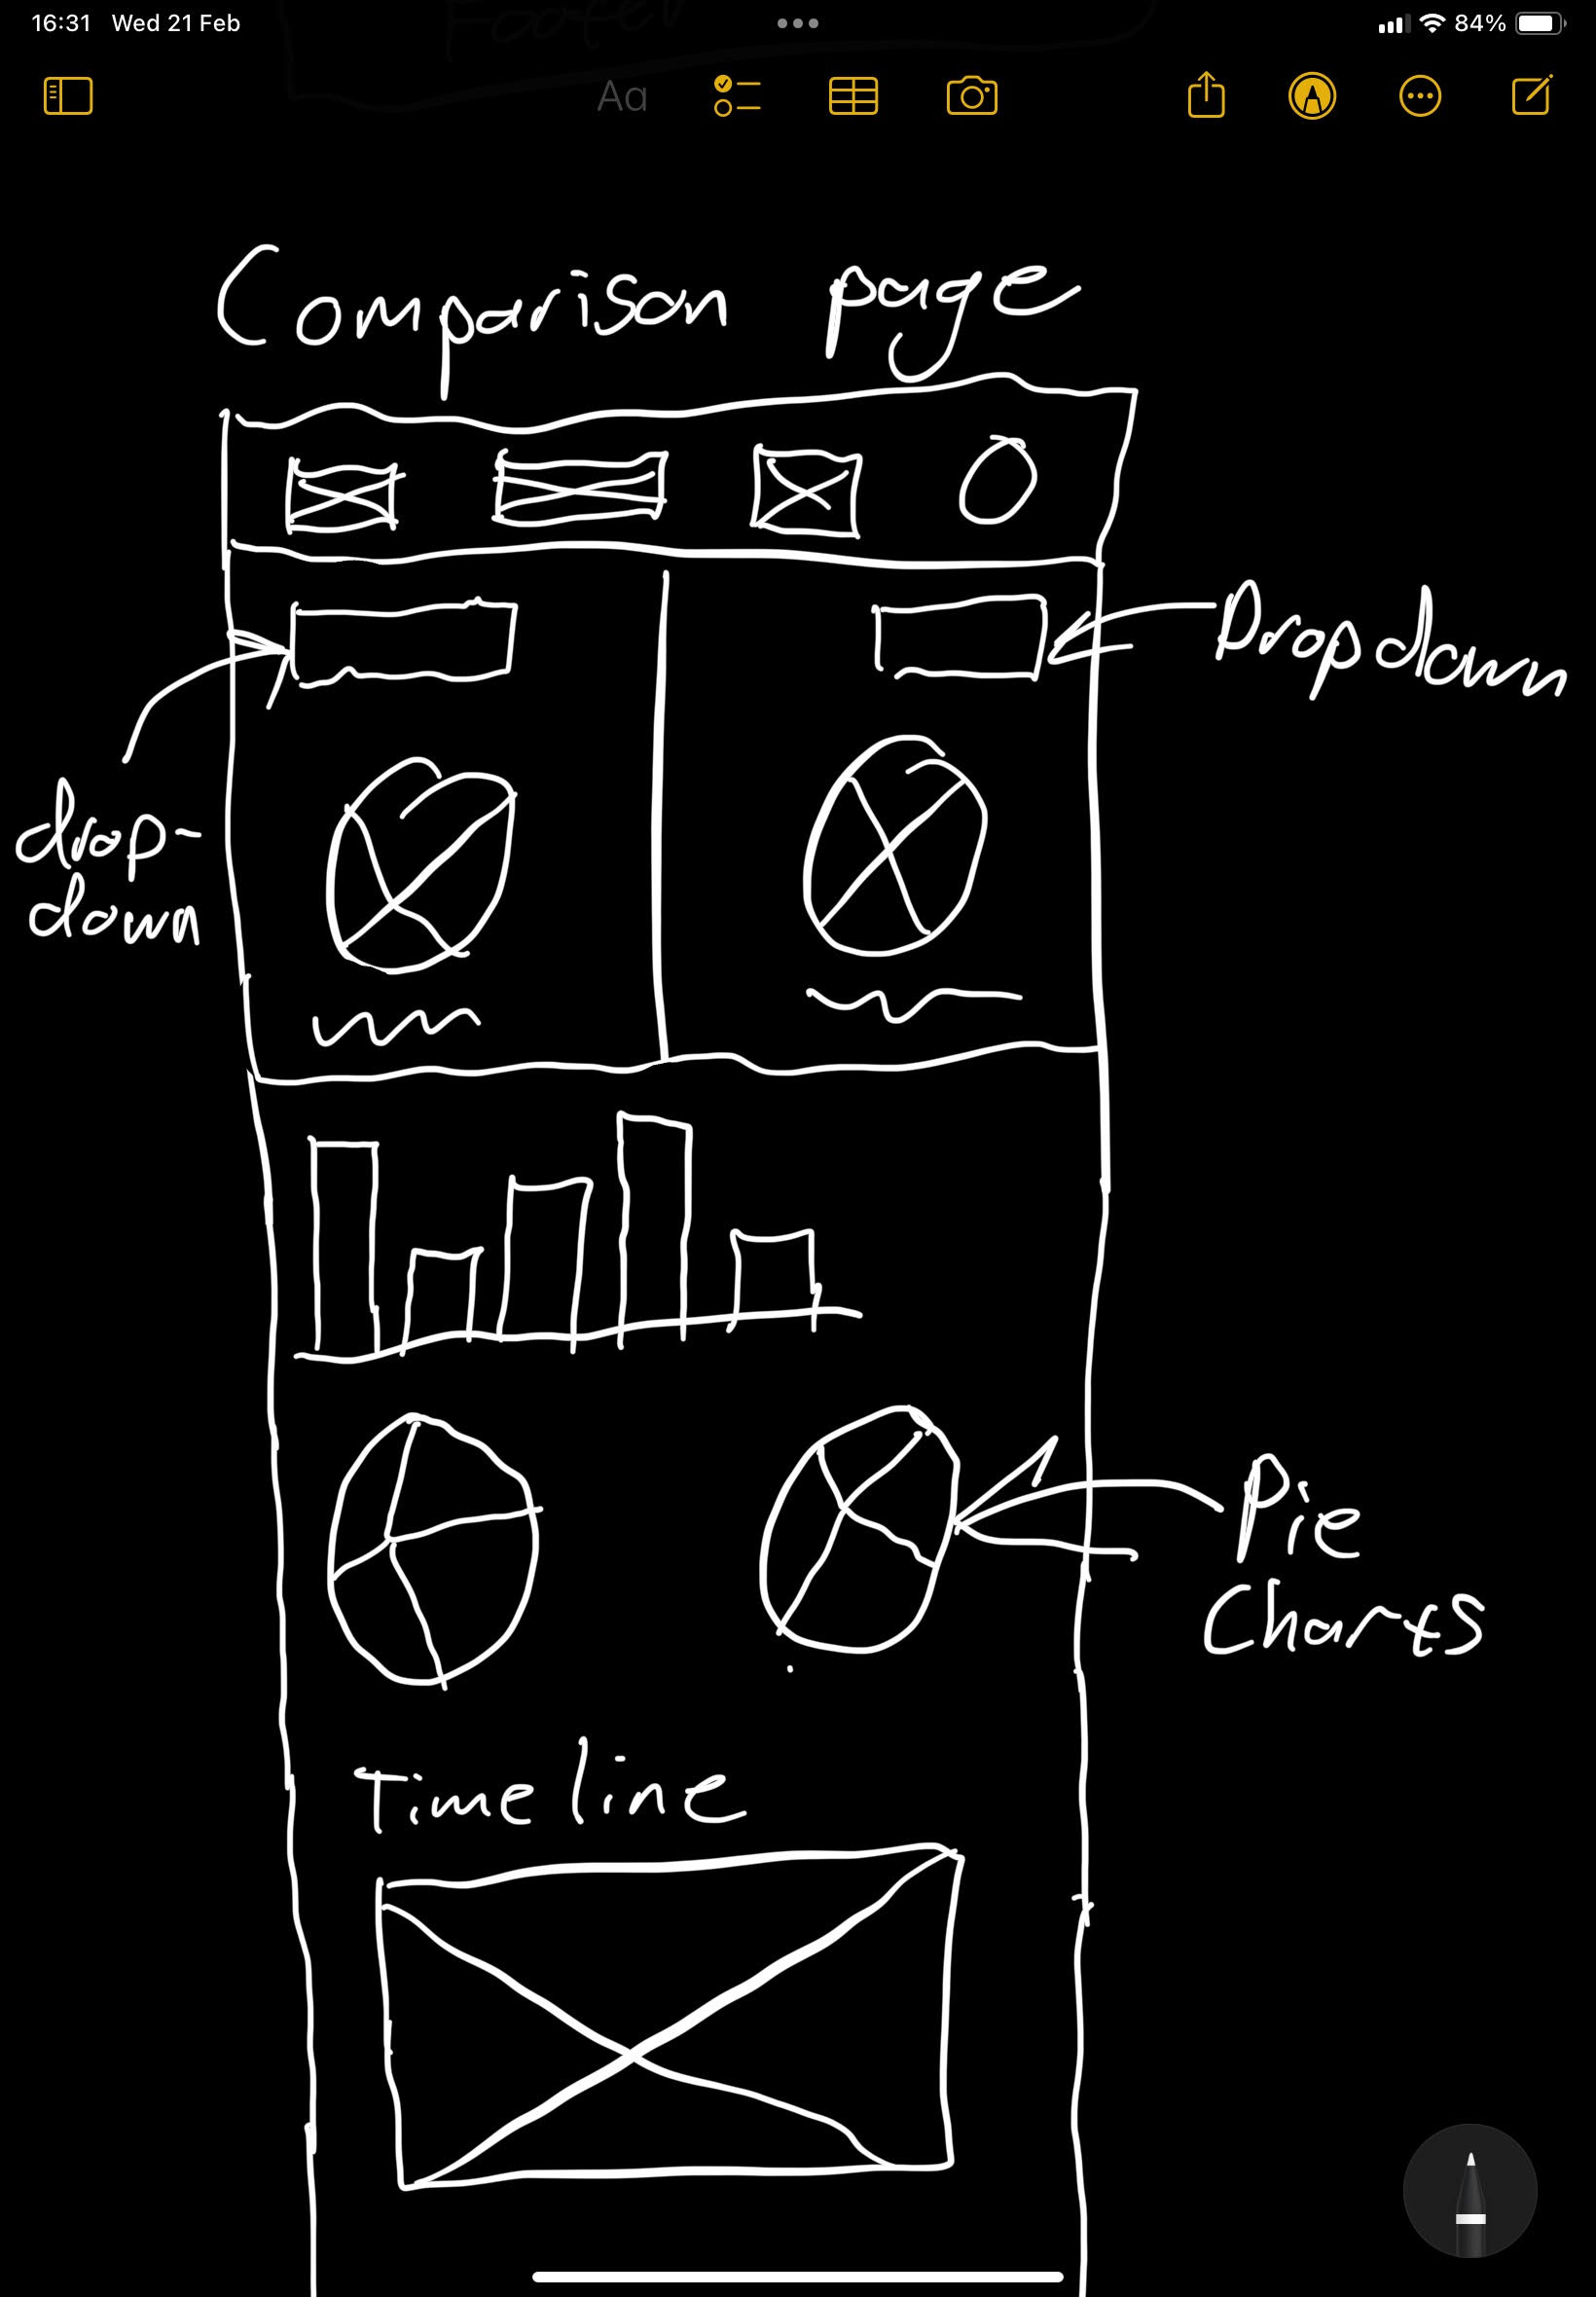 16:31 Wed 21 Feb
84%
Footer
Aa
Comparison page
Dropdown
drop-
down
Pie
Charts
Timeline